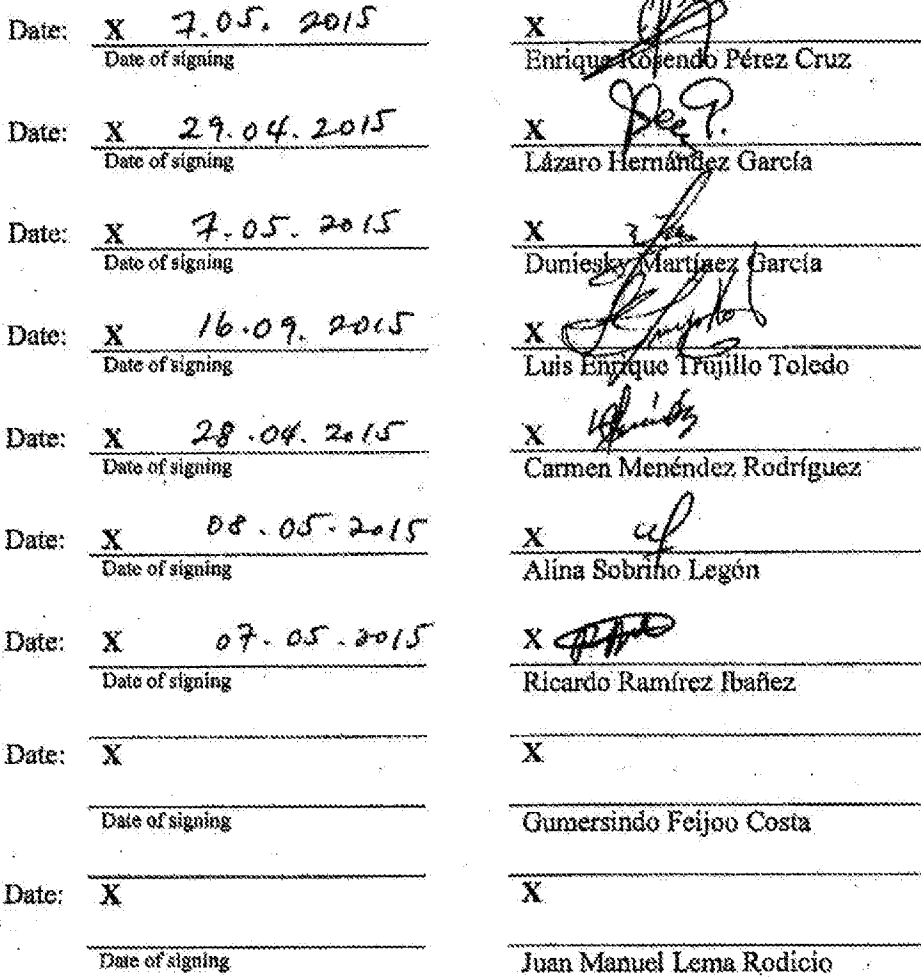 Date: X 7.05. 2015 X
Date of signing Enrique Rosendo Pérez Cruz
Date: X 29.04.2015 X
Date of signing Lázaro Hernández García
Date: X 7.05.2015 X
Date of signing Duniesky Martínez García
Date: X 16.09.2015 X
Date of signing Luis Enrique Trujillo Toledo
Date: X 28.04.2015 X
Date of signing Carmen Menéndez Rodríguez
Date: X 08.05-2015 X
Date of signing Alina Sobriño Legón
Date: X 07.05.2015 X
Date of signing Ricardo Ramírez Ibañez
Date: X X
Date of signing Gumersindo Feijoo Costa
Date: X X
Date of signing Juan Manuel Lema Rodicio